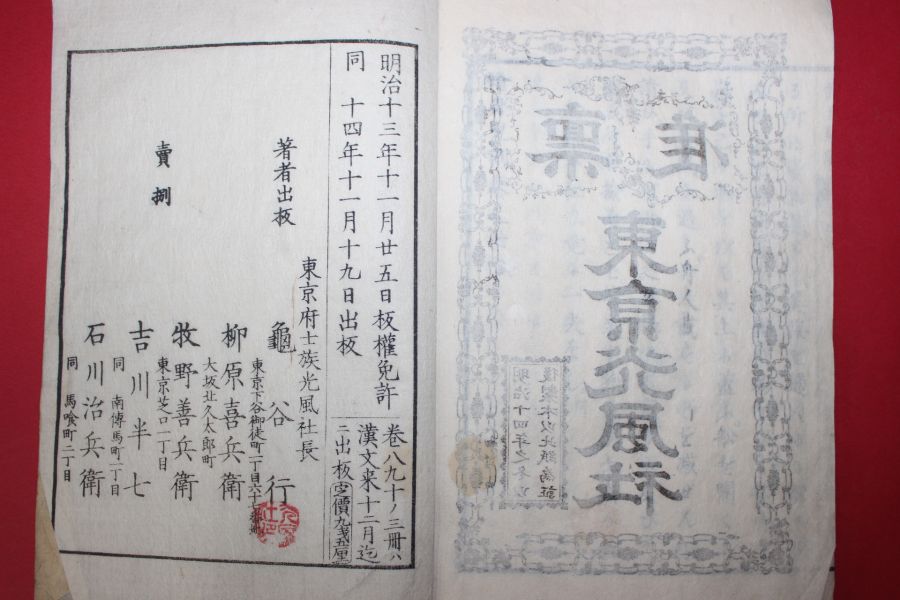 明治十三年十一月廿五日板權免許
同 十四年十一月十九日出板
卷八九十ノ三冊ハ
漢文来十二月迄
ニ出板 定價九戔五厘
著者出板
東京府士族光風社長
龜谷行
東京下谷御徒町一丁目六十七番地
賣捌
柳原喜兵衛
大坂北久太郎町
牧野善兵衛
東京芝口一丁目
吉川半七
同 南傳馬町一丁目
石川治兵衛
同 馬喰町二丁目
准稟
東京光風社
明治十四年之冬
後製本以此紙為証